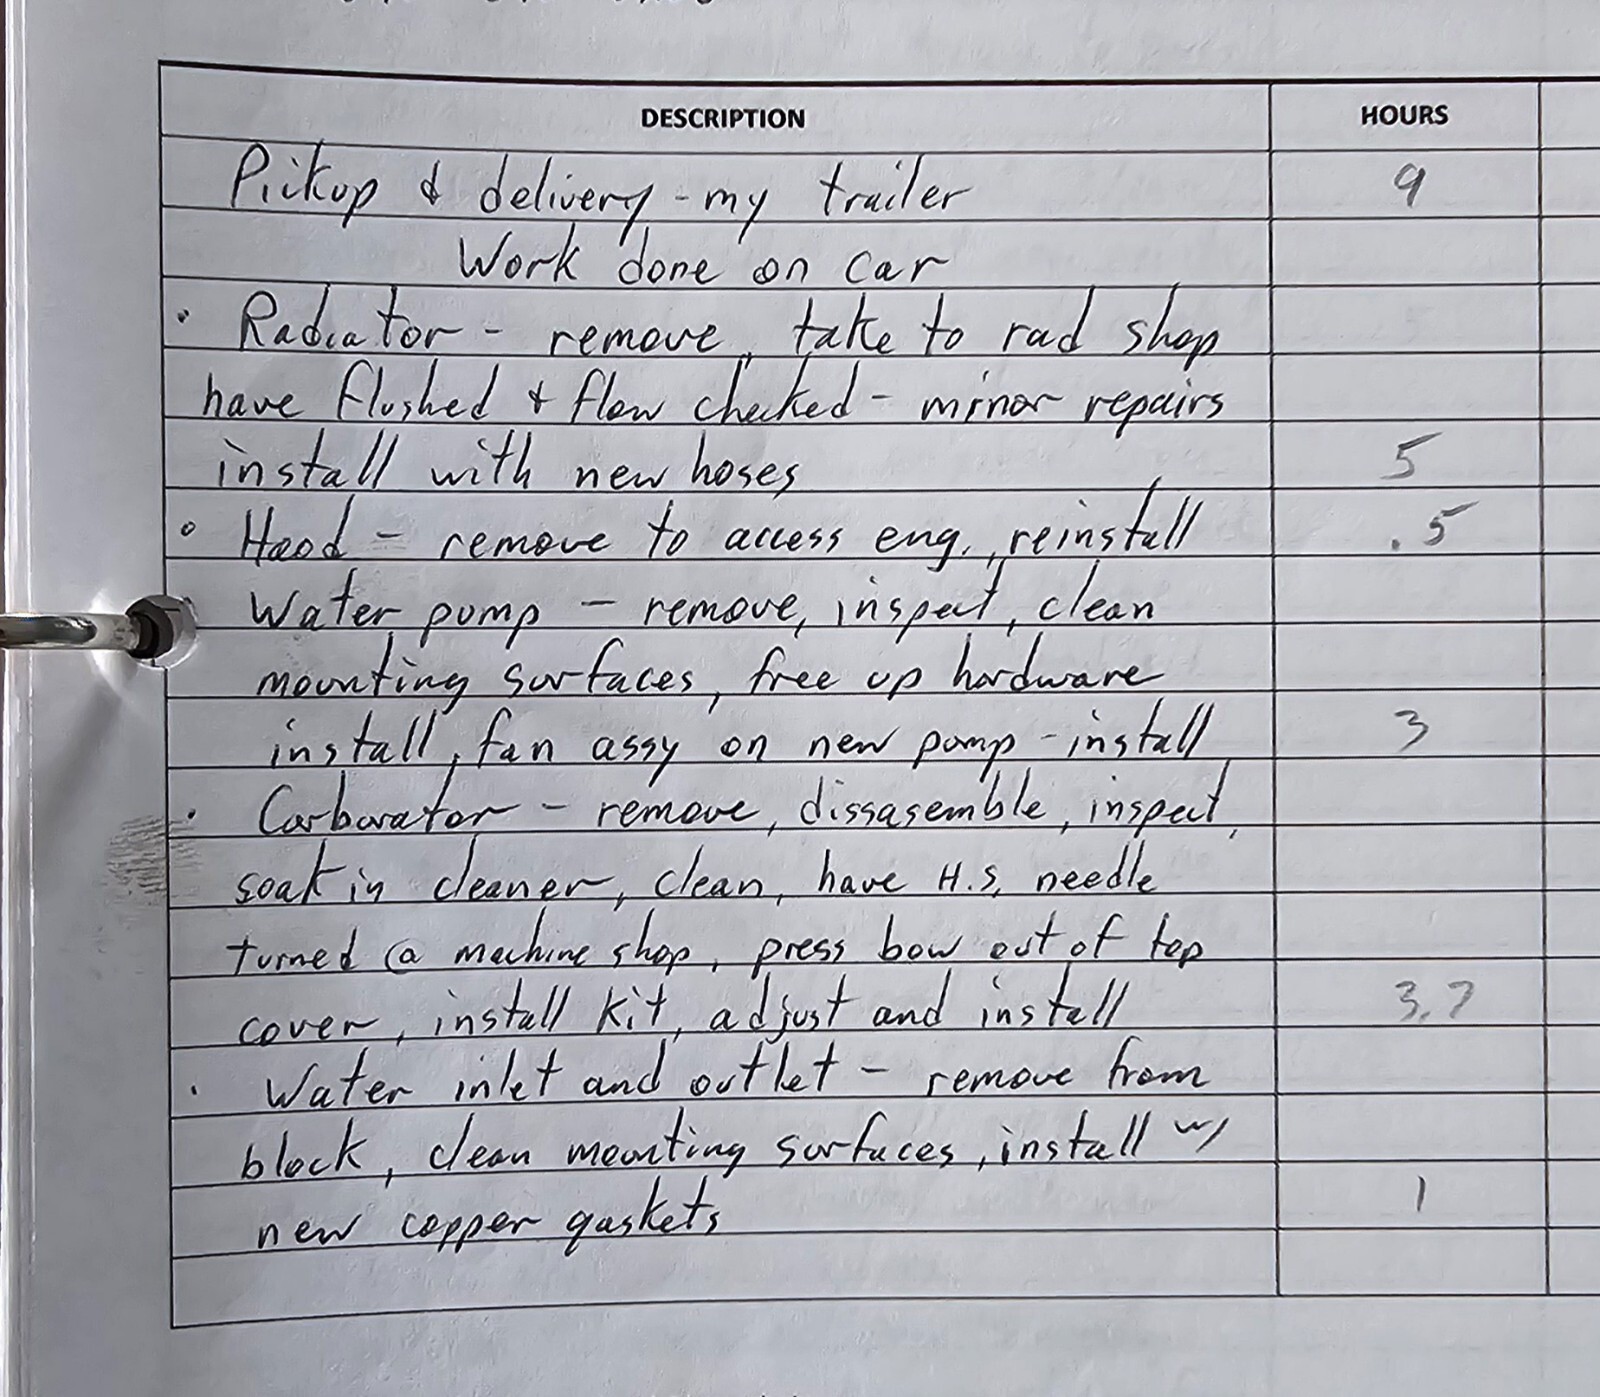 DESCRIPTION HOURS
Pickup & delivery - my trailer 9
Work done on car
· Radiator - remove, take to rad shop
have flushed & flow checked - minor repairs
install with new hoses 5
° Hood - remove to access eng., reinstall .5
Water pump - remove, inspect, clean
mounting surfaces, free up hardware
install, fan assy on new pump - install 3
· Carburator - remove, dissasemble, inspect,
soak in cleaner, clean, have H.S. needle
turned @ machine shop, press bow out of top
cover, install kit, adjust and install 3.7
· Water inlet and outlet - remove from
block, clean mounting surfaces, install w/
new copper gaskets 1